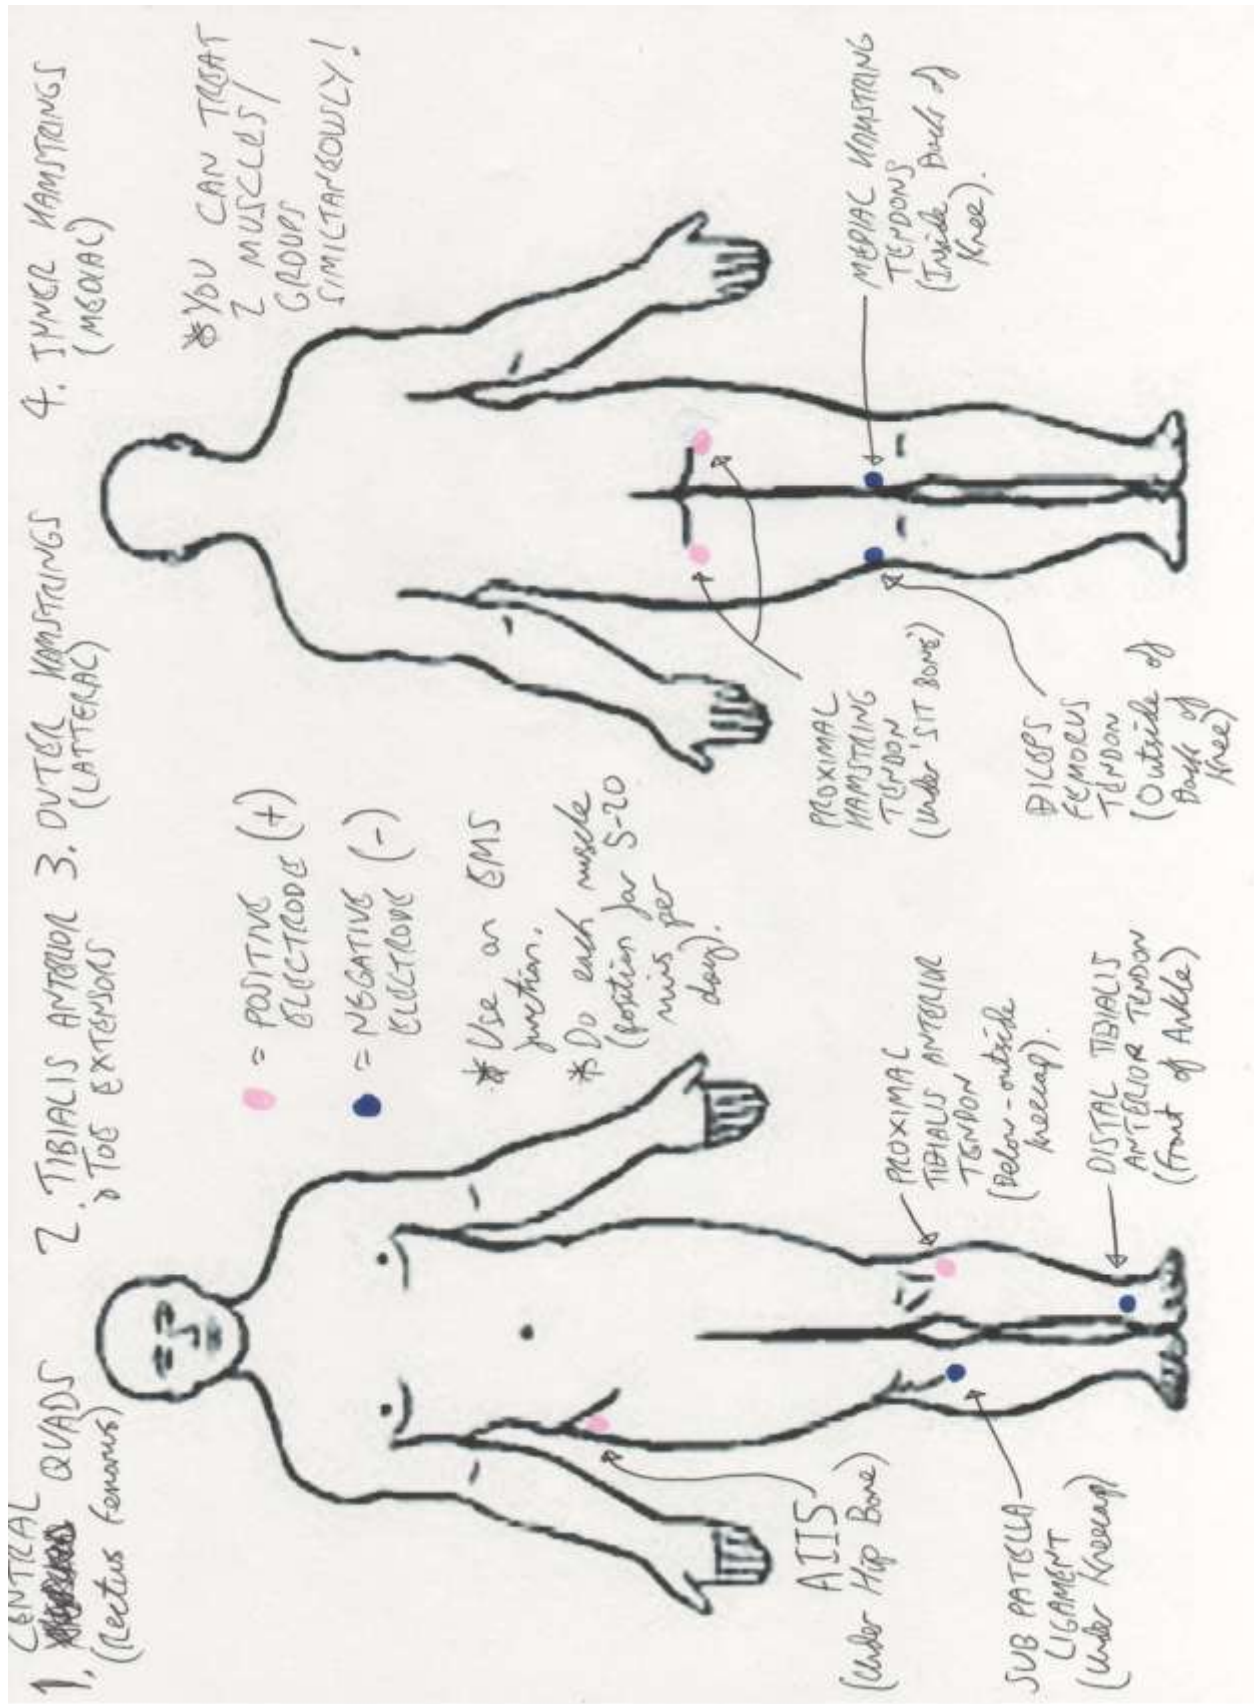 1. CENTRAL
QUADS
(Rectus Femorus)
2. TIBIALIS ANTERIOR
& TOE EXTENSORS
3. OUTER HAMSTRINGS
(LATTERAL)
4. INNER HAMSTRINGS
(MEDIAL)
= POSITIVE
ELECTRODE (+)
= NEGATIVE
ELECTRODE (-)
* Use an EMS
function.
* Do each muscle
(position for 5-20
mins per
day).
* YOU CAN TREAT
2 MUSCLES/
GROUPS
SIMILTANEOUSLY!
AIIS
(Under Hip Bone)
SUB PATELLA
LIGAMENT
(Under Kneecap)
PROXIMAL
TIBIALIS ANTERIOR
TENDON
(Below-outside
kneecap).
DISTAL TIBIALIS
ANTERIOR TENDON
(Front of Ankle)
PROXIMAL
HAMSTRING
TENDON
(Under 'SIT BONE')
BICEPS
FEMORUS
TENDON
(Outside of
Back of
Knee)
MEDIAL HAMSTRING
TENDONS
(Inside Back of
Knee).